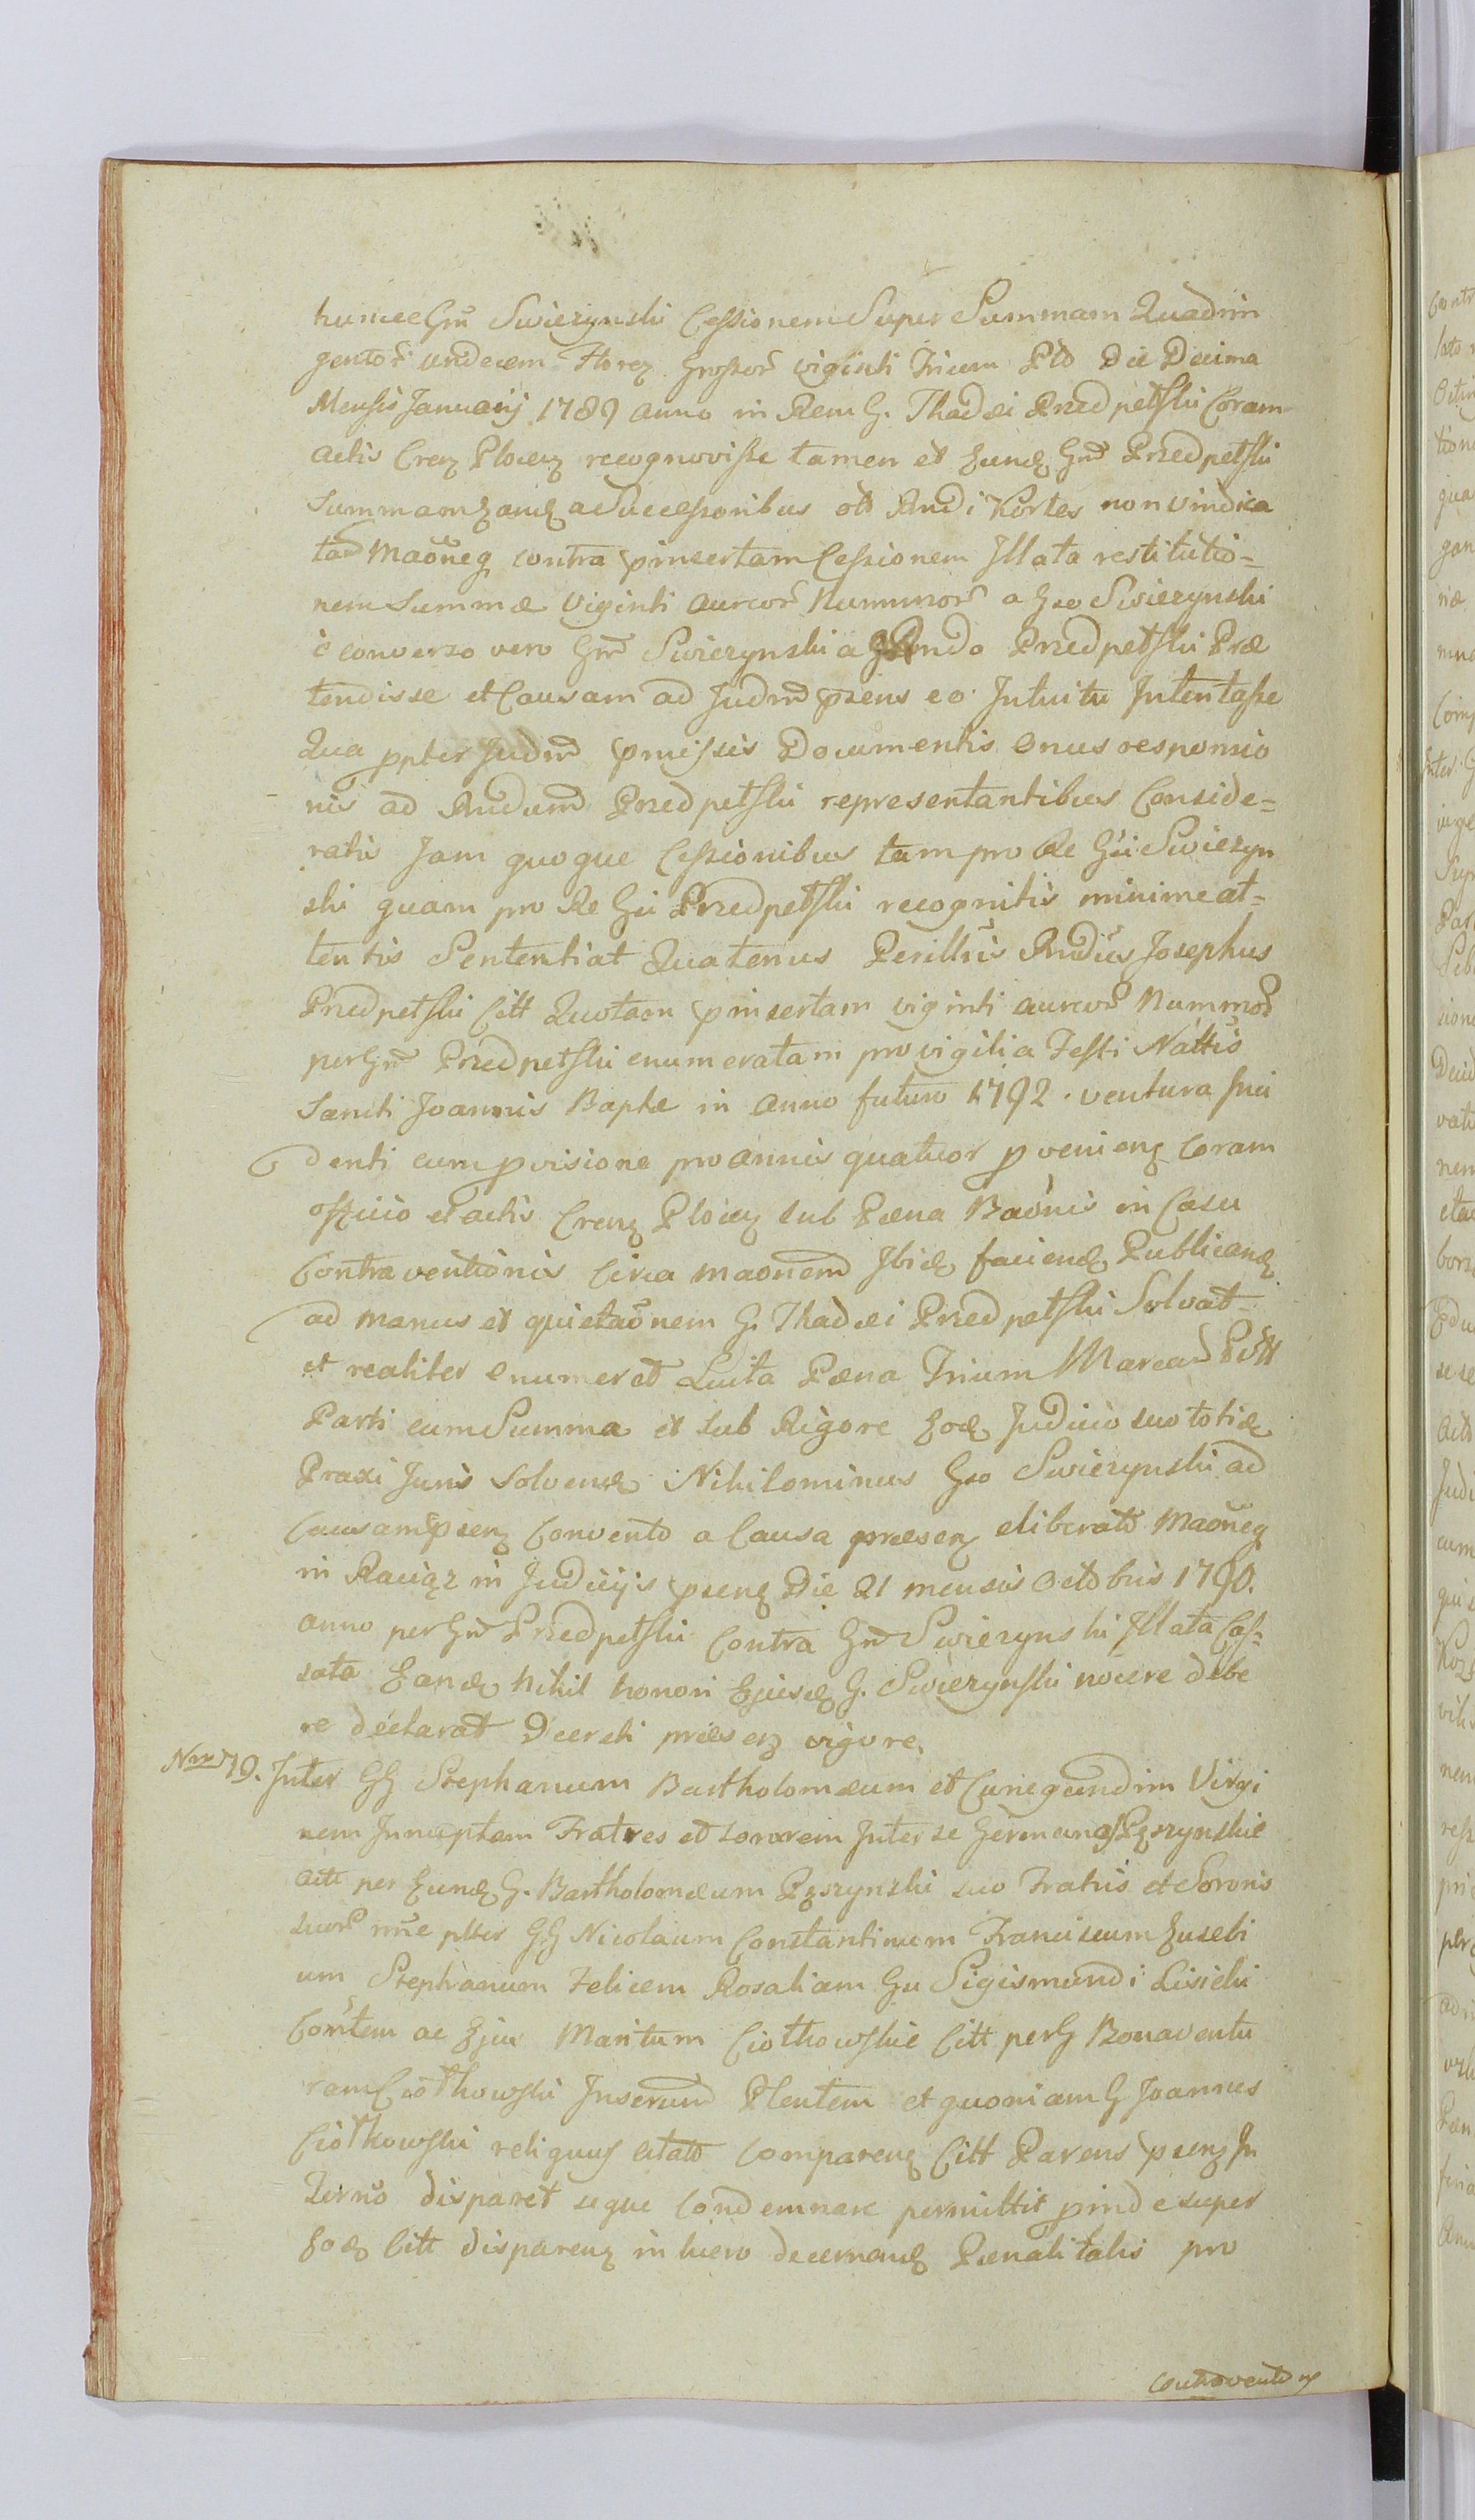 huncce Gnū Swiezynski Cessionem Super Summam Quadrin
gentor̃ undecem Florez Grossor̃ viginti Trium Pld Die Decima
Mensis Januarij 1789 anno in Rem G. Thadæi Przedpełski Coram
actis Crenz Plocenz recognovisse tamen et Eund Gnm̃ Przedpełski
Summam Eand a Successoribus old Rndi Kortes non vindica
tad Maõneq contra pinsertam Cessionem Illata restitutio=
nem Summæ Viginti aureor̃ Nummor̃ a Gso Swiezynski
è converso vero Gnm̃ Swiezynski a Rndo Przedpełski Præ
tendisse et Causam ad Judm̃ psens eo Intuitu Intentasse
Qua ppter Judm̃ pmissis Documentis onus responsio
nis ad Rndum̃ Przedpełski representantibus Conside=
ratis Jam quoque Cessionibus tam pro Re Gsi Swiezyn
ski quam pro Re Gsi Przedpełski recognitis minime at=
tentis Sententiat Quatenus Perillris Rndus Josephus
Przedpełski Citt Quotam pinsertam viginti aureor̃ Nummor̃
per Gnm̃ Przedpełski enumeratam pro vigilia Festi Nattis
Sancti Joannis Baptæ in anno futuro 1792. ventura Inci
denti cum pvisione pro annis quatuor pvenienz Coram
officio et actis Crenz Plocenz sub Pæna Baõnis in Casu
Contraventionis Circa maonem̃ Ibid faciend Publicand
ad manus et quietaõnem G. Thadæi Przedpełski Solvat
et realiter enumeret Luita Pæna Trium Marcar̃ Pltt
Parti cum Summa et sub Rigore Eod Judicio suo totid
Praxi Juris Solvend Nihilominus Gso Swiezynski ad
Causam psenz Convento a Causa præsenz eliberato Maõneq
in Raciąz in Judicijs psenz Die 21 mensis Octobris 1790.
anno per Gnm̃ Przedpełski Contra Gnm̃ Swiezynski Illata Cas=
sata Eand Nihil honori Ejusd G. Swiezynski nocere debe
re declarat Decreti præsenz vigore.
Nro 79. Inter GG Stephanum Bartholomæum et Cunegundim Virgi
nem Innuptam Fratres et sororem Inter se Germanos Pęszynskie
actt per Eund G. Bartholomæum Pęszynski suo Fratris et Sororis
suor̃ nn̄e ptter GG Nicolaum Constantinum Franciscum Eusebi
um Stephanum Felicem Rosaliam Gsi Sigismundi Lisicki
Contem ac Ejus Maritum Ciołkowskie Citt per G Bonaventu
ram Ciołkowski Inserum̃ Pltentem et quoniam G Joannes
Ciołkowski reliquus citato Comparenz Citt Parens psenz In
Termõ disparet seque Condemnare permittit proinde super
Eod Citt disparenz in lucro decernend Pænalitatis pro
Contraventõnis